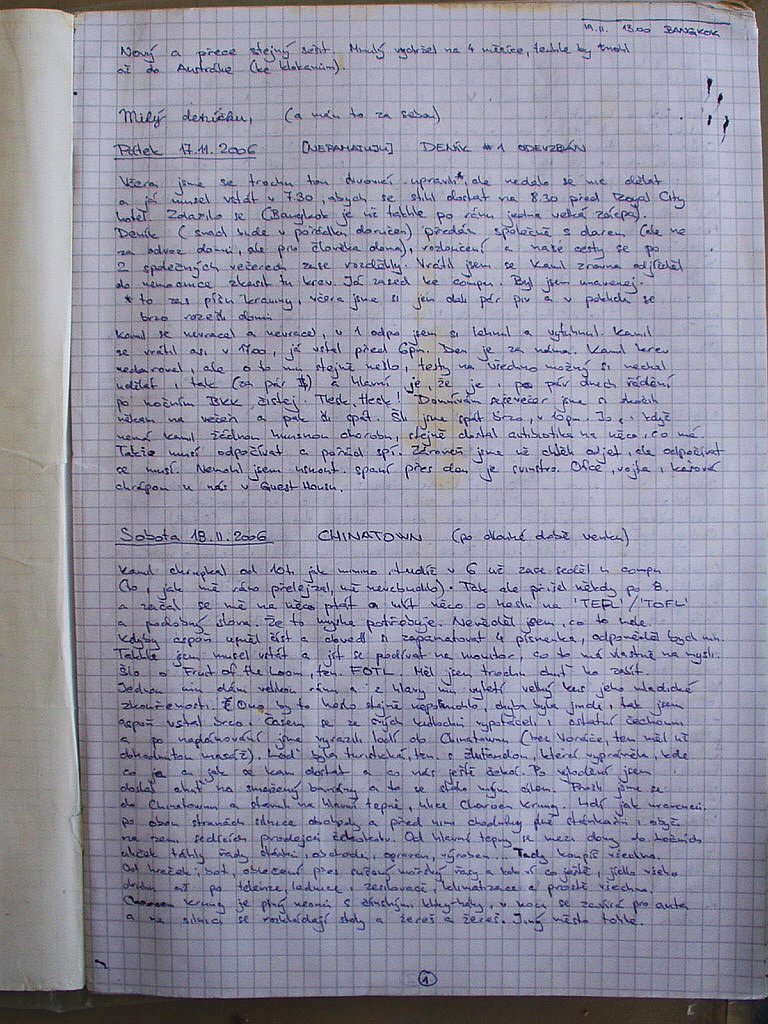 19.11. 13:00 BANGKOK
Nový a přece stejný sešit. Minulý vydržel na 4 měsíce, tenhle by mohl
až do Austrálie (ke klokanům).
Milý deníčku, (a mám to za sebou)
Pátek 17.11.2006 [NEPAMATUJU] DENÍK #1 ODEVZDÁN
Včera jsme se trochu tou divočinou upravili*, ale nedalo se nic dělat
a já musel vstát v 7.30, abych se stihl dostat na 8.30 před Royal City
hotel. Zdařilo se (Bangkok je už takhle po ránu jedna velká zácpa).
Deník (snad bude v pořádku doručen) předán společně s darem (ale ne
za odvoz domů, ale pro člověka doma), rozloučení a naše cesty se po
2 společných večerech zase rozdělily. Vrátil jsem se Kamil zrovna odjížděl
do nemocnice zkusit tu krev. Já zased ke compu. Byl jsem unavenej.
* to zas příliš kraviny, včera jsme si jen dali pár piv a v poklidu se
brzo rozešli domů
Kamil se nevracel a nevracel, v 1 odpo jsem si lehnul a vytuhnul. Kamil
se vrátil asi v 17:00, já vstal před 6pm. Den je za náma. Kamil krev
nedaroval, ale o to mu stejně nešlo, testy na všechno možný si nechal
udělat i tak (za pár $) a hlavní je, že je i po pár dnech řádění
po nočním BKK čistej. Tleck, tleck! Domnívám se, že večer jsme si skočili
někam na večeři a pak šli spát. Šli jsme spát brzo, v 10pm. Jo, když
nemá Kamil žádnou hnusnou chorobu, stejně dostal antibiotika na něco, co má.
Takže musí odpočívat a pořád spí. Zároveň jsme už chtěli odjet, ale odpočívat
se musí. Nemohl jsem usnout. Spaní přes den je svinstvo.
chrápou u nás v Guest Housu.
Sobota 18.11.2006 CHINATOWN (po dlouhé době venku)
Kamil chrupkal od 10ti jak mimino, tudíž v 6 už zase seděl u compu
(to, jak mě ráno přelejzal, mě nevzbudilo). Tak ale přijel někdy po 8.
a začal se mě na něco ptát a říkt něco o heslu na 'TEFL'/'TOFL'
a podobný slova. Že to myslím potřebuje. Nevěděl jsem, co to mele.
Kdyby aspoň uměl číst a dovedl si zapamatovat 4 písmenka, odpověděl bych mu.
Takhle jsem musel vstát a jít se podívat na monitor, co to má vlastně na mysli.
Šlo o Fruit of the Loom, ten. FOTL. Měl jsem trochu chuť ho zabít.
Jednou mu dám velkou ránu a z hlavy mu vyletí velký kus jeho mladické
zkušenosti. Ono by to heslo stejně nepomohlo, chyba byla jinde, tak jsem
aspoň vstal brzo. Časem se ze svých kutlochů vypotáceli i ostatní Čechouni
a po naplánování jsme vyrazili lodí do Chinatownu (bez Vonáče, ten měl už
dohodnutou masáž). Loď byla turistická, ten. s žluťandou, která vyprávěla, kde
co je a jak se kam dostat a co nás ještě čeká. Po vylodění jsem
dostal chuť na smažený banány a to se stalo mým cílem. Prošli jsme se
do Chinatownu a stanuli na hlavní tepně, ulice Charoen Krung. Lidí jak mravenců,
po obou stranách silnice obchody a před nimi chodníky plné stánkařů i obyč.
na zemi sedících prodejců čehokoliv. Od hlavní tepny se mezi domy do bočních
uliček táhly řady stánků, obchodů, opraven, výroben... Tady koupíš všechno.
Od hraček, bot, oblečení přes
druhu až po televize, lednice, zesilovače, klimatizace a prostě všechno.
Charoen Krung je plný neonů s čínskými klikyháky, v noci se zavírá pro auta
a na silnici se rozkládají stoly a žereš a žereš. Jiný město tohle.
1